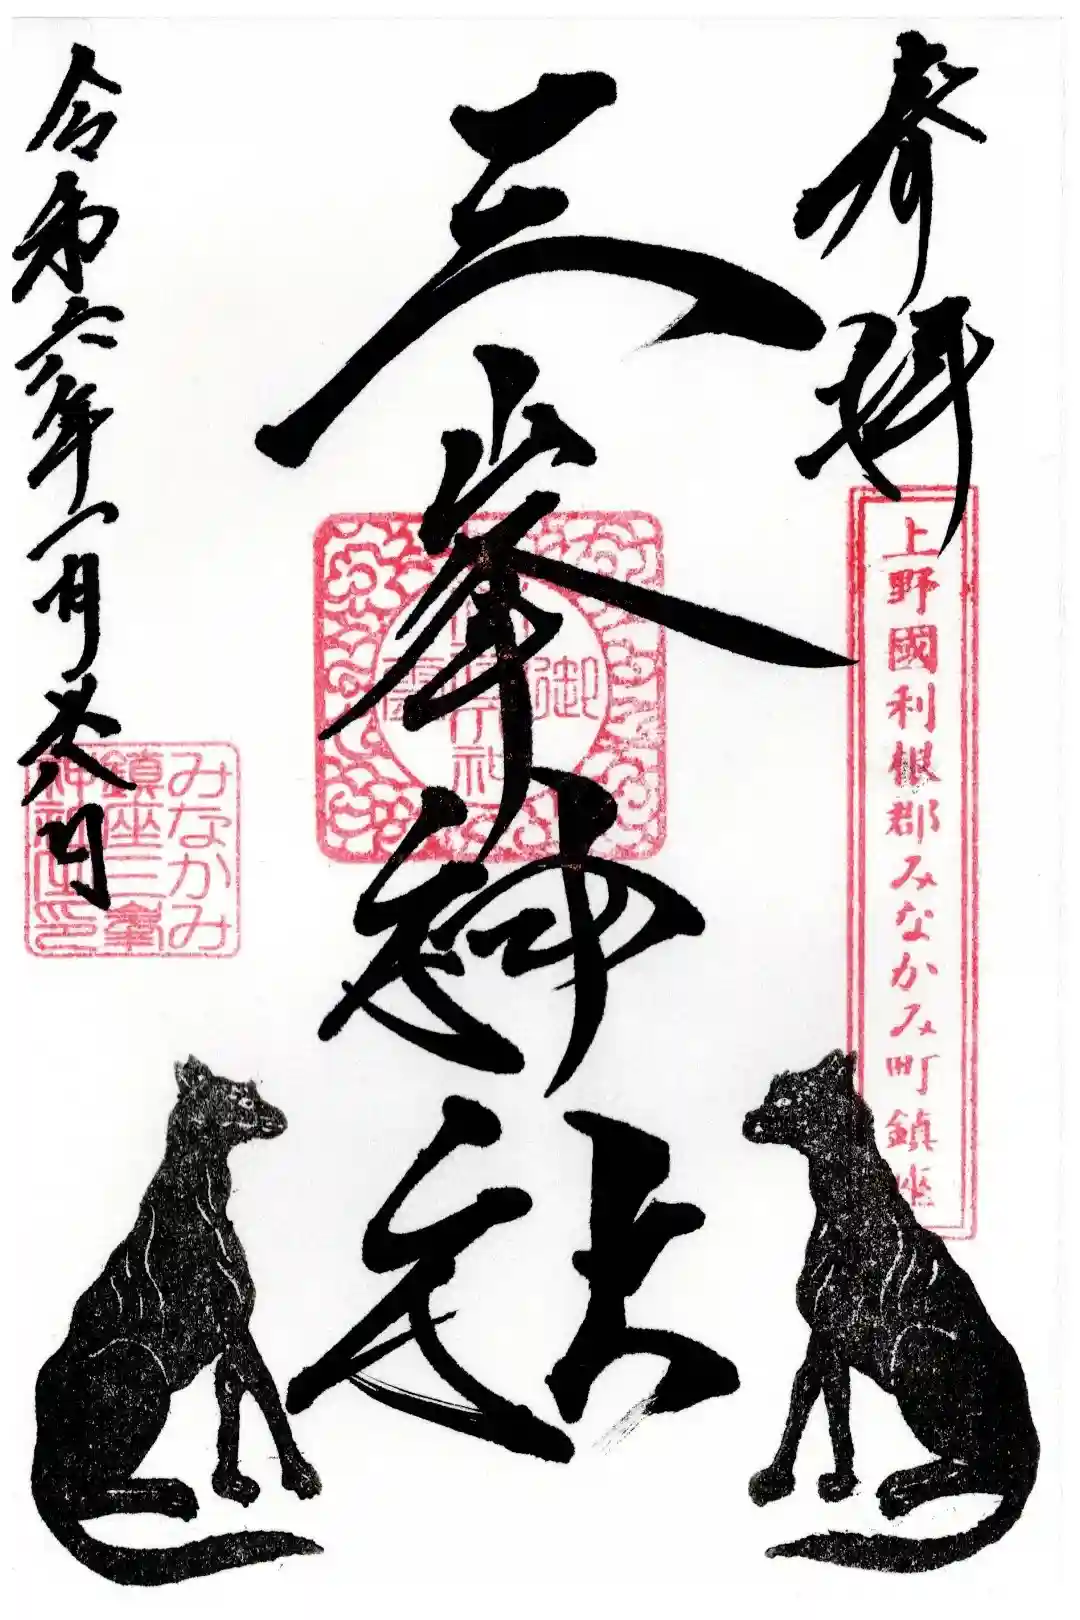 奉拝
上野國利根郡みなかみ町鎮座
三峯神社
令和六年一月
みなかみ
鎮座三峯
神社之印